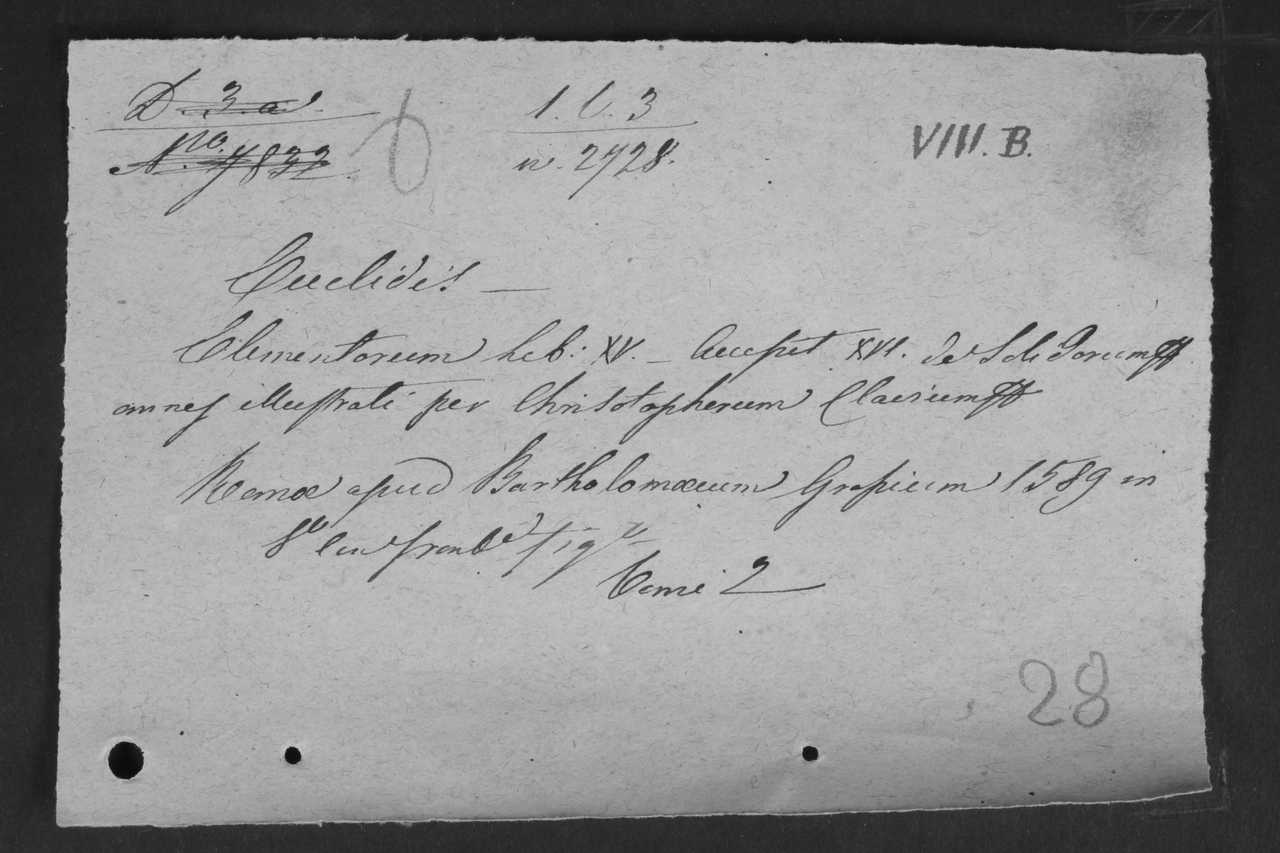 D. 3. a.
Nro. 7832
1. C. 3
n. 2728.
VIII. B.
Euclidis —
Elementorum Lib: XV. — Accessit XVI. de Solidorum
omnes illustrati per Christopherum Clavium
Romæ apud Bartholomæum Grasium 1589 in
8o cum fig
Tomi 2
28